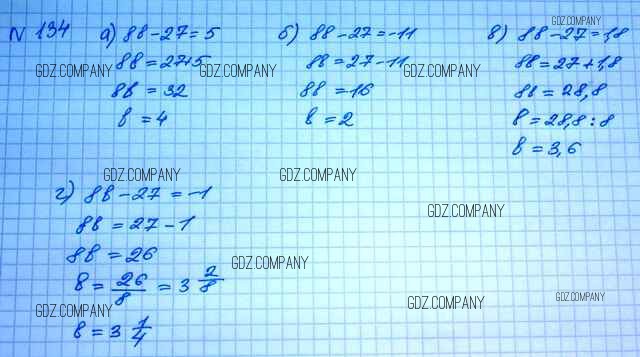 N 134 а) 8в - 27 = 5
8в = 27+5
8в = 32
в = 4
б) 8в - 27 = -11
8в = 27 - 11
8в = 16
в = 2
в) 8в - 27 = 1,8
8в = 27 + 1,8
8в = 28,8
в = 28,8 : 8
в = 3,6
г) 8в - 27 = -1
8в = 27 - 1
8в = 26
в = 26/8 = 3 2/8
в = 3 1/4
GDZ.COMPANY
GDZ.COMPANY
GDZ.COMPANY
GDZ.COMPANY
GDZ.COMPANY
GDZ.COMPANY
GDZ.COMPANY
GDZ.COMPANY
GDZ.COMPANY
GDZ.COMPANY
GDZ.COMPANY
GDZ.COMPANY